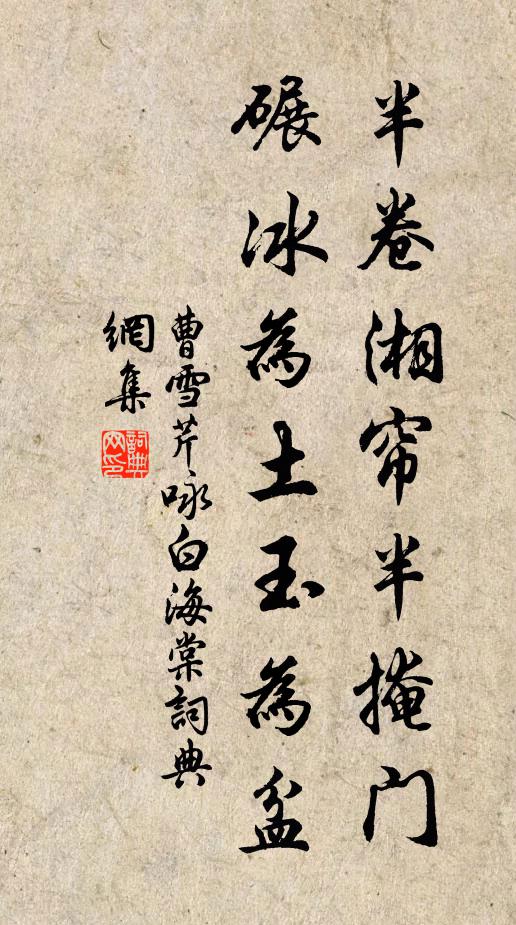 半卷湘帘半掩门
碾冰為土玉為盆
曹雪芹咏白海棠詞典
網集
詞典
网印